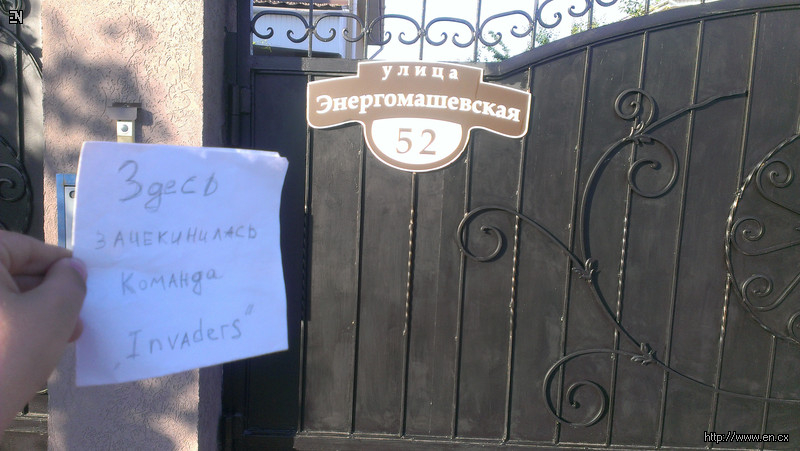 EN
улица
Энергомашевская
52
Здесь
зачекинилась
команда
„Invaders"
http://www.en.cx